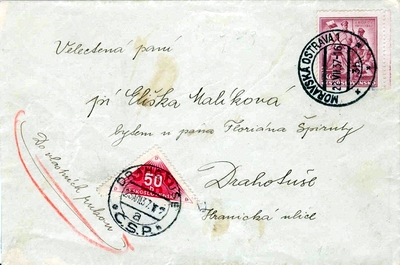 Velectená paní
MORAVSKÁ OSTRAVA 1
pí Eliška Malíková
bytem u pana Floriána Špiruty
Do vlastních rukou
50
DRAHOTUŠE
a
Č.S.P.
Drahotuše
Hranická ulice